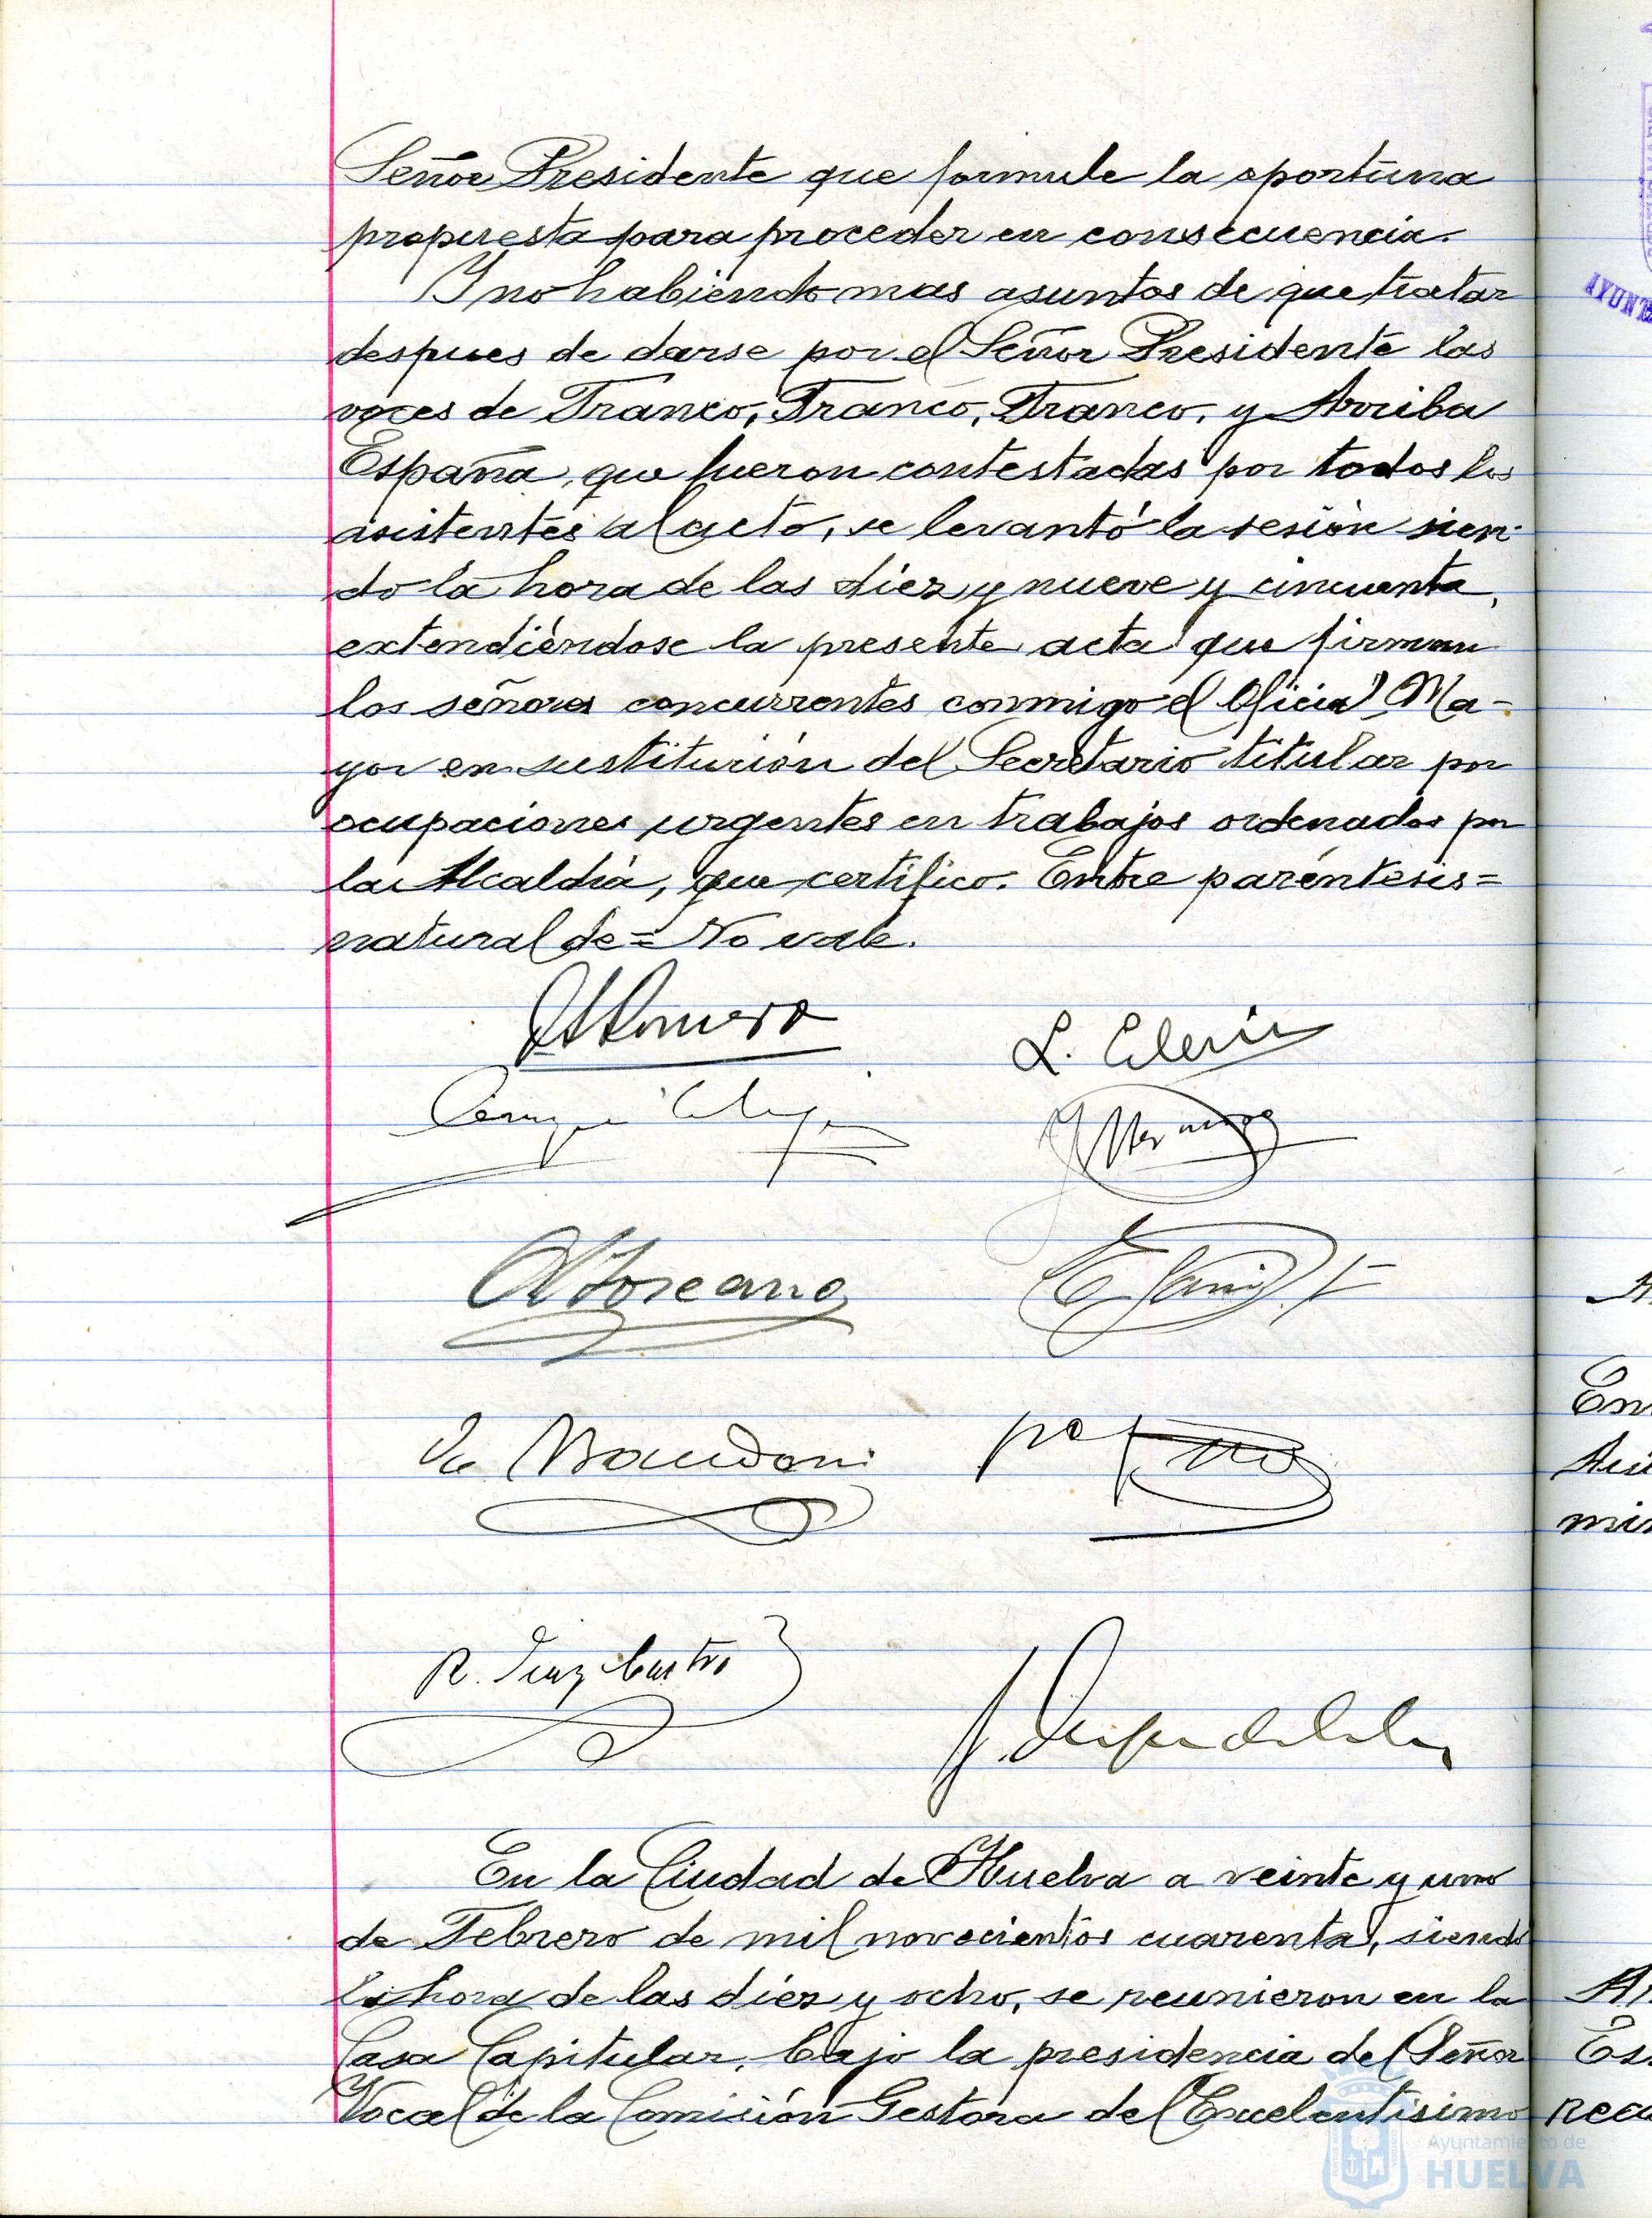 Señor Presidente que formule la oportuna
propuesta para proceder en consecuencia.
Y no habiendo mas asuntos de que tratar
despues de darse por el Señor Presidente las
voces de Franco, Franco, Franco, y Arriba
España, que fueron contestadas por todos los
asistentes al acto, se levantó la sesión sien-
do la hora de las diez y nueve y cincuenta,
extendiéndose la presente acta que firman
los señores concurrentes conmigo el Oficial Ma-
yor en sustitución del Secretario titular por
ocupaciones urgentes en trabajos ordenados por
la Alcaldía, que certifico. Entre paréntesis=
natural de= No vale.
Romero
L.
Enrique
R. Diaz Castro
En la Ciudad de Huelva a veinte y uno
de Febrero de mil novecientos cuarenta, siendo
la hora de las diez y ocho, se reunieron en la
Casa Capitular, bajo la presidencia del Señor
Vocal de la Comisión Gestora del Excelentísimo
Ayuntamiento de
HUELVA